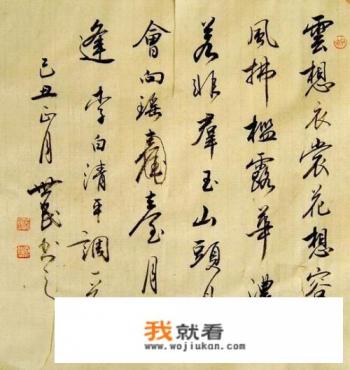 雲想衣裳花想容
風拂檻露華濃
若非羣玉山頭
會向瑤臺月
逢李白清平調一
己丑正月
我就看
www.wojiukan.com